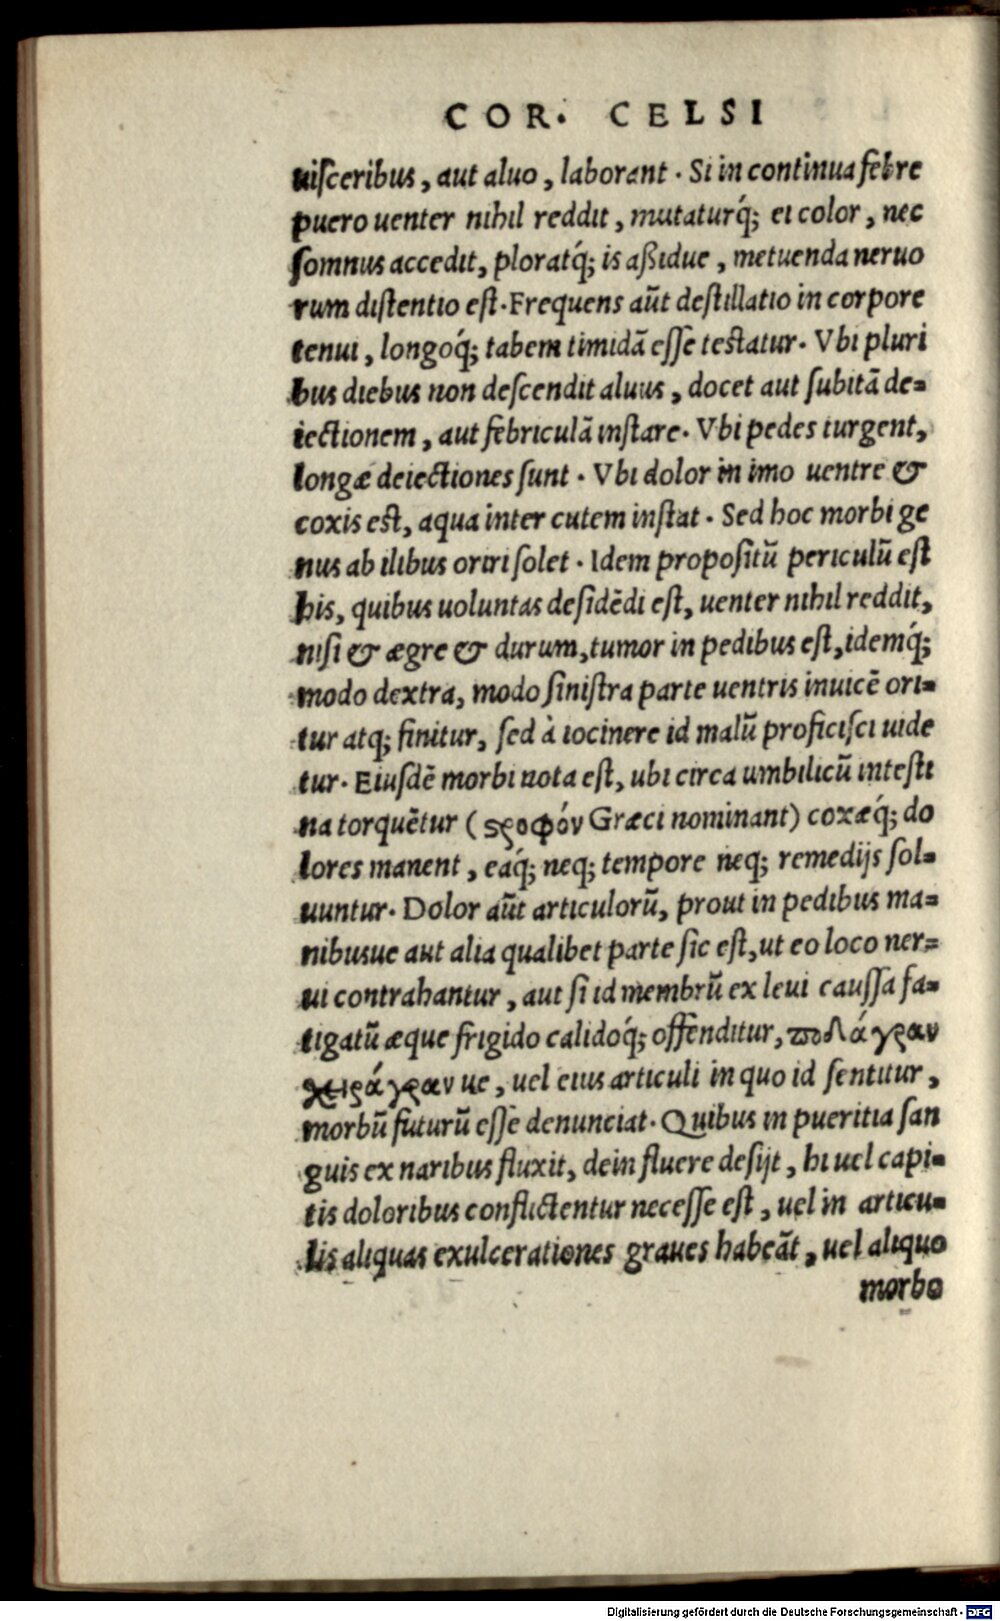 COR. CELSI
uiſceribus, aut aluo, laborant. Si in continua febre
puero uenter nihil reddit, mutaturq́; ei color, nec
ſomnus accedit, ploratq́; is aßidue, metuenda neruo
rum diſtentio eſt. Frequens aūt deſtillatio in corpore
tenui, longoq́; tabem timidā eſſe teſtatur. Vbi pluri
bus diebus non deſcendit aluus, docet aut ſubitā de=
iectionem, aut febriculā inſtare. Vbi pedes turgent,
longæ deiectiones ſunt. Vbi dolor in imo uentre &
coxis eſt, aqua inter cutem inſtat. Sed hoc morbi ge
nus ab ilibus oriri ſolet. Idem propoſitū periculū eſt
his, quibus uoluntas deſidēdi eſt, uenter nihil reddit,
niſi & ægre & durum, tumor in pedibus eſt, idemq́;
modo dextra, modo ſiniſtra parte uentris inuicē ori=
tur atq; finitur, ſed à iocinere id malū proficiſci uide
tur. Eiuſdē morbi nota eſt, ubi circa umbilicū inteſti
na torquētur (ϛροφόν Græci nominant) coxæq́; do
lores manent, eaq́; neq; tempore neq; remedijs ſol=
uuntur. Dolor aūt articulorū, prout in pedibus ma=
nibusue aut alia qualibet parte ſic eſt, ut eo loco ner=
ui contrahantur, aut ſi id membrū ex leui cauſſa fa=
tigatū æque frigido calidoq́; offenditur, ϖολάγραν
χειράγραν ue, uel eius articuli in quo id ſentitur,
morbū futurū eſſe denunciat. Quibus in pueritia ſan
guis ex naribus fluxit, dein fluere deſijt, hi uel capi=
tis doloribus conflictentur neceſſe eſt, uel in articu=
lis aliquas exulcerationes graues habeāt, uel aliquo
morbo
Digitalisierung gefördert durch die Deutsche Forschungsgemeinschaft - DFG